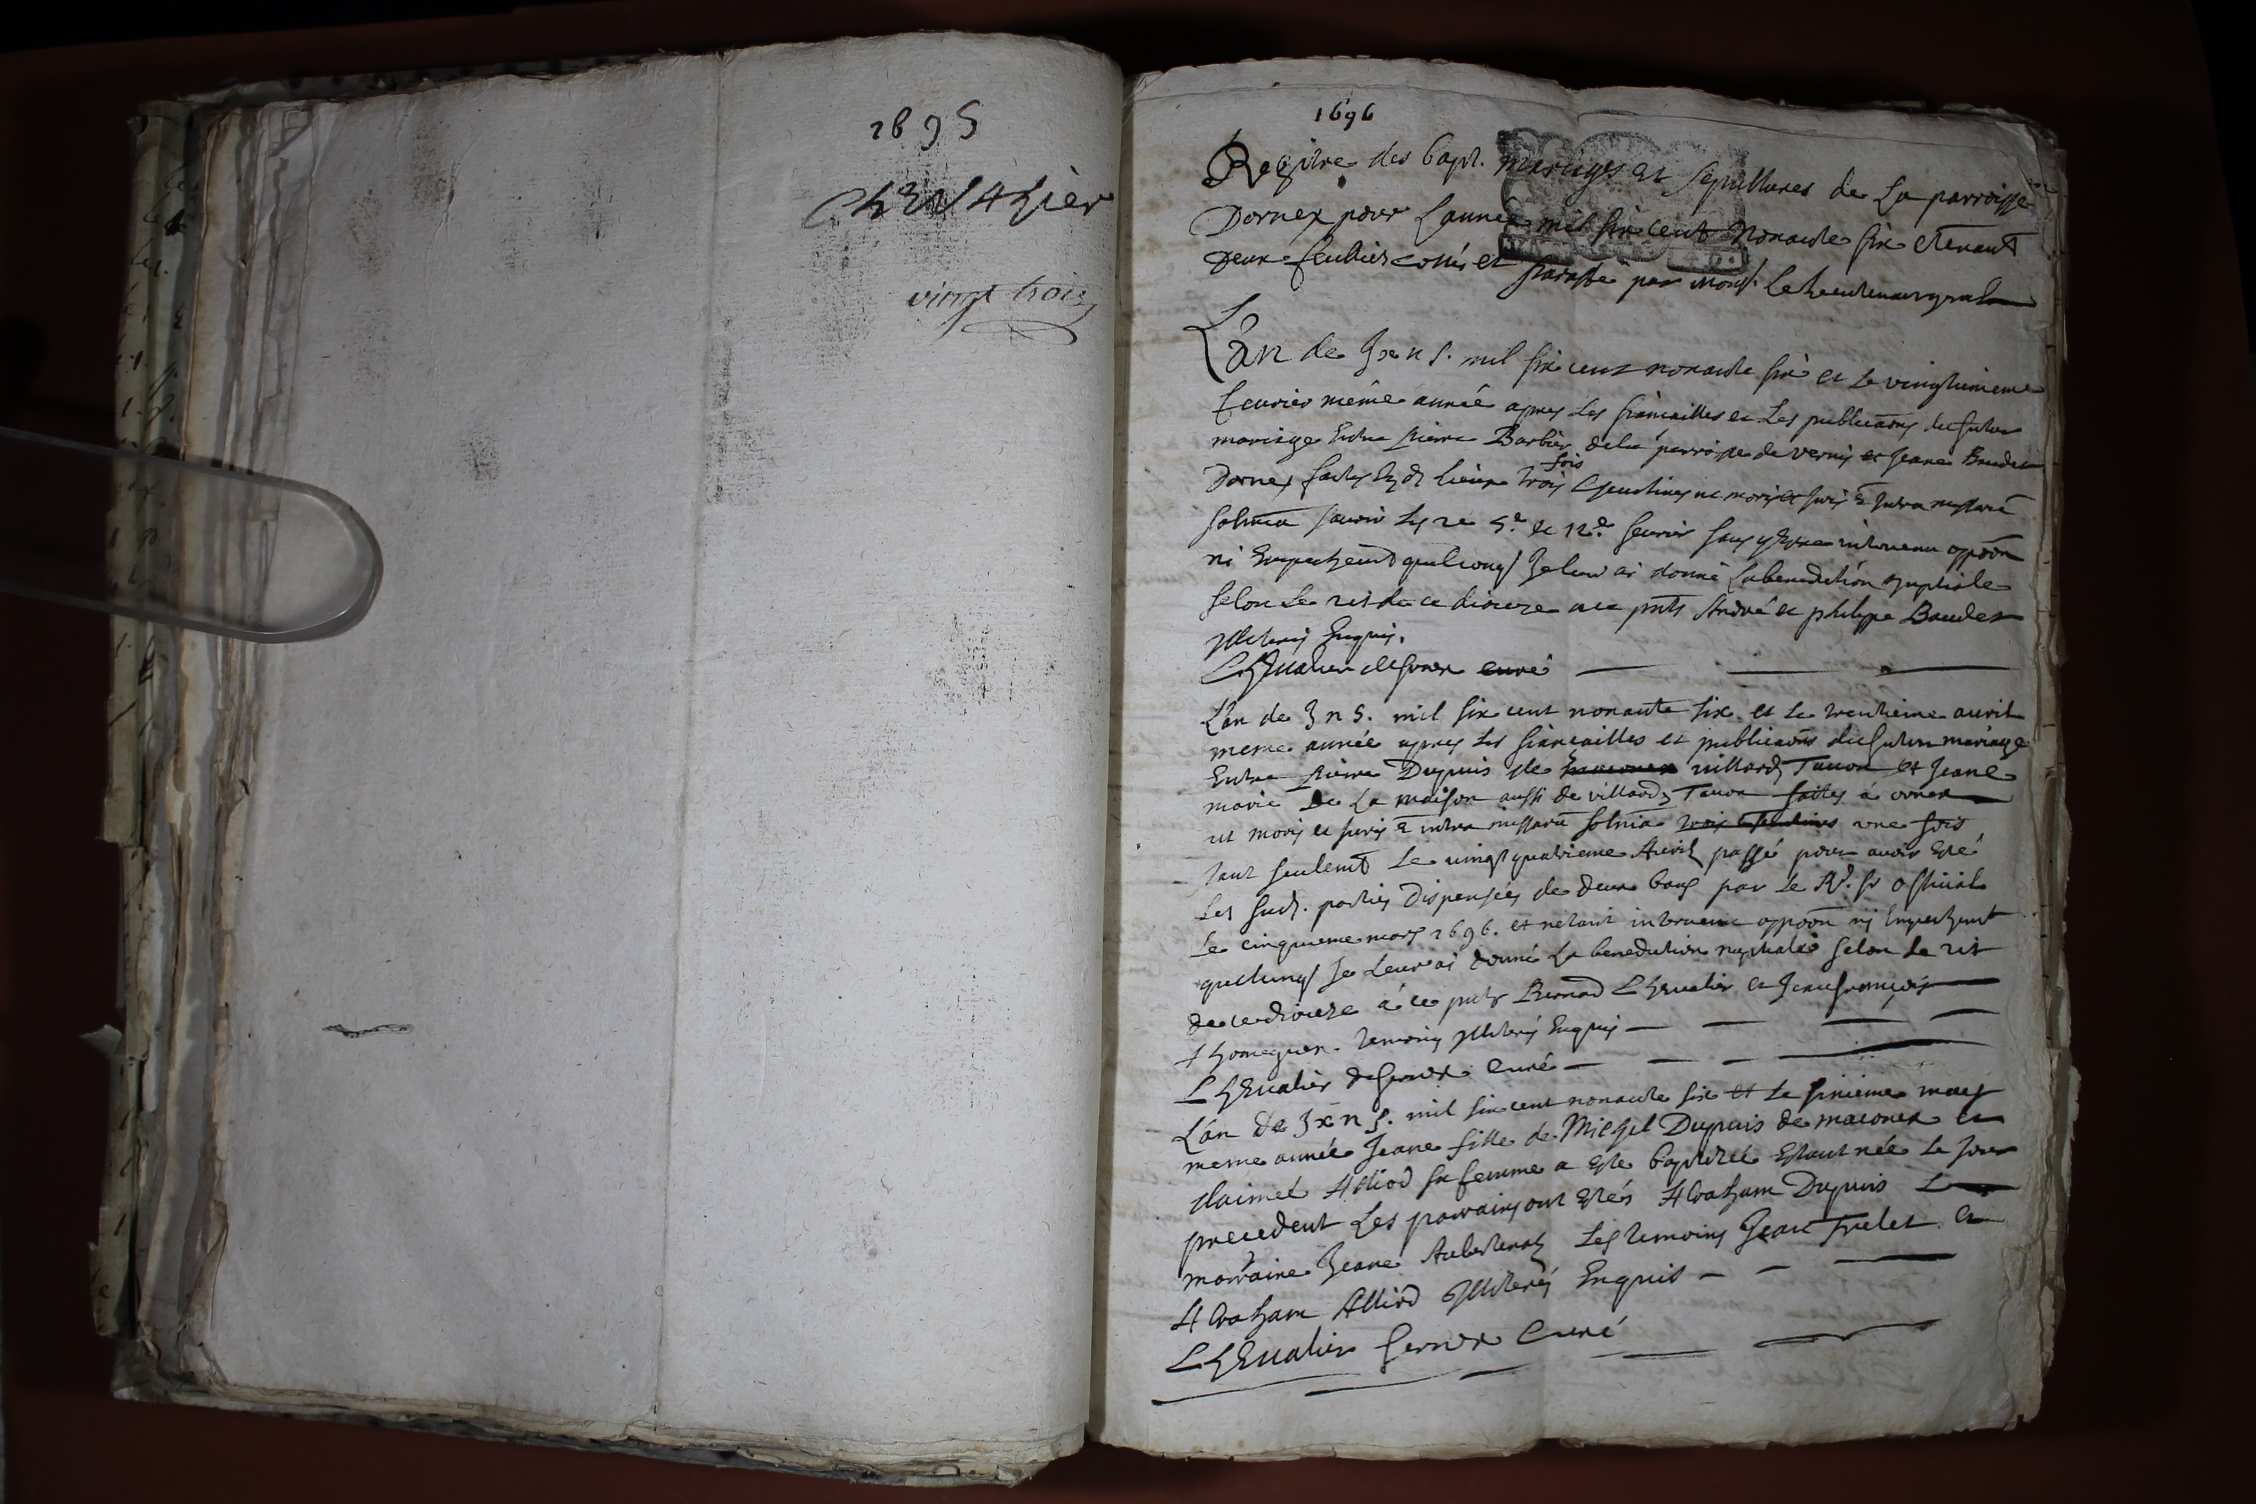 1695
Chevalier
vingt trois
1696
Registre des bapt. mariages et sepultures de la parroisse
Dornex pour L'année mil six cent nonante six contenant
deux feuilles cottés et paraffé par Monsr. le Lieutenant gnral
L'an de n S. mil six cent nonante six et le vingtunieme
feuvrier même année apres les fiancailles et Les publicaons du futur
mariage Entre Pierre Barbier de la parroisse de Verny et Jeane Baudet
Dornex faites trois fois ut moris et juris e intra missarū
solmnia savoir les 2e 5.e et 12.e feuvrier sans y estre intervenu oppoōn
ni Empechemt quelconq Je leur ai donné La benediction nuptiale
selon le rit de ce diocese a ce pnts André et philippe Baudet
illiterés Enquis.
Chevalier desservex curé
L'an de n S. mil six cent nonante six et le trentieme avril
meme année apres les fiancailles et publicaons du futur mariage
Entre Pierre Dupuis de maconex villards Tacon et Jeane
marie De La maison aussi de villards Tacon faittes a ornex
ut moris et juris e intra missarū solmnia trois une fois
tant seulemt Le vingt quatrieme Avril passé pour avoir esté
Les sud. parties Dispensées de deux bans par le Rd. Sr official
Le cinquieme mars 1696. et n'etant intervenu oppoōn ni Empechemt
quelconq Je Leur ai donné La benediction nuptiale selon Le rit
de ce diocese a ce pnts Bernard Chevalier et Jeanfrançois
temoins illiterés Enquis
Chevalier curé
L'an de n S. mil six cent nonante six et Le sixieme may
meme année Jeane fille de Michel Dupuis de maconex et
d'aimée Alliod sa femme a esté baptisée Estant née le jour
precedent Les parrains ont estés Abraham Dupuis La
marraine Jeane Les temoins Jean et
Abraham Alliod illiterés Enquis
Chevalier curé